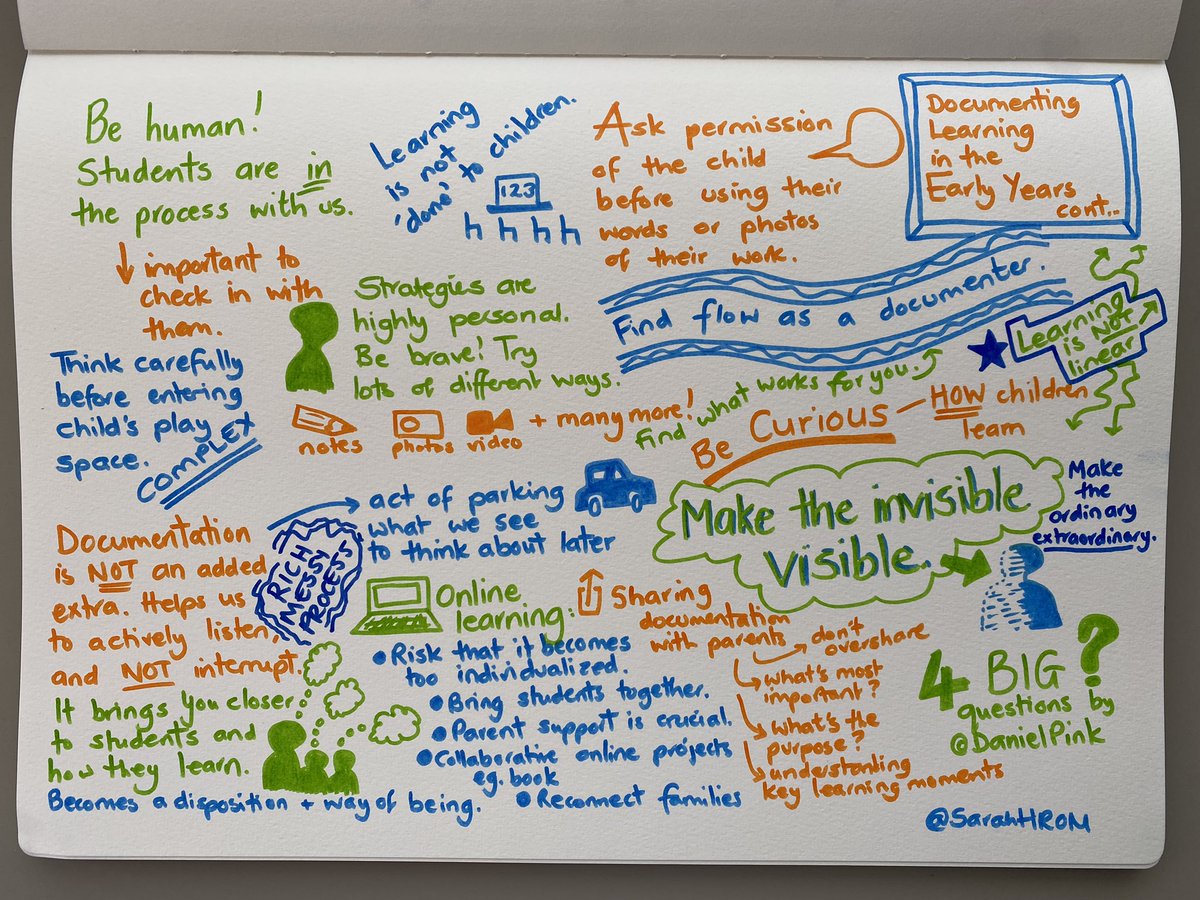 Documenting
Learning
in the
Early Years
cont...
Be human!
Students are in
the process with us.
important to
check in with
them.
Learning
is not
'done' to children.
123
Ask permission
of the child
before using their
words or photos
of their work.
Find flow as a documenter.
Learning
is NOT
linear
Strategies are
highly personal.
Be brave! Try
lots of different ways.
notes
photos
video
+ many more!
find what works for you.
Think carefully
before entering
child's play
space.
COMPLEX
Be Curious
HOW children
learn
Make the invisible
visible.
Make
the
ordinary
extraordinary.
Documentation
is NOT an added
extra. Helps us
to actively listen,
and NOT interrupt.
RICH
MESSY
PROCESS
act of parking
what we see
to think about later
It brings you closer
to students and
how they learn.
Becomes a disposition + way of being.
Online
learning:
Risk that it becomes
too individualized.
Bring students together.
Parent support is crucial.
Collaborative online projects
eg. book
Reconnect families
Sharing
documentation
with parents
don't
overshare
what's most
important?
what's the
purpose?
understanding
key learning moments
4 BIG ?
questions by
@DanielPink
@SarahHROM